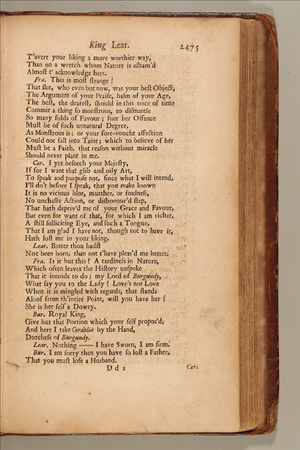 King Lear. 2475
T'avert your liking a more worthier way,
Than on a wretch whom Nature is asham'd
Almost t' acknowledge hers.
Fra. This is most strange!
That she, who even but now, was your best Object,
The Argument of your Praise, balm of your Age,
The best, the dearest, should in this trice of time
Commit a thing so monstrous, to dismantle
So many folds of Favour; sure her Offence
Must be of such unnatural Degree,
As Monstrous is; or your fore-voucht affection
Could not fall into Taint; which to believe of her
Must be a Faith, that reason without miracle
Should never plant in me.
Cor. I yet beseech your Majesty,
If for I want that glib and oily Art,
To speak and purpose not, since what I will intend,
I'll do't before I speak, that you make known
It is no vicious blot, murther, or foulness,
No unchaste Action, or dishonour'd step,
That hath depriv'd me of your Grace and Favour,
But even for want of that, for which I am richer,
A still solliciting Eye, and such a Tongue,
That I am glad I have not, though not to have it,
Hath lost me in your liking.
Lear. Better thou hadst
Not been born, than not t'have pleas'd me better.
Fra. Is it but this? A tardiness in Nature,
Which often leaves the History unspoke
That it intends to do; my Lord of Burgundy,
What say you to the Lady? Love's not Love
When it is mingled with regards, that stands
Aloof from th'intire Point, will you have her?
She is her self a Dowry.
Bur. Royal King,
Give but that Portion which your self propos'd,
And here I take Cordelia by the Hand,
Dutchess of Burgundy.
Lear. Nothing —— I have Sworn, I am firm.
Bur. I am sorry then you have so lost a Father,
That you must lose a Husband.
D d 2 Cor.